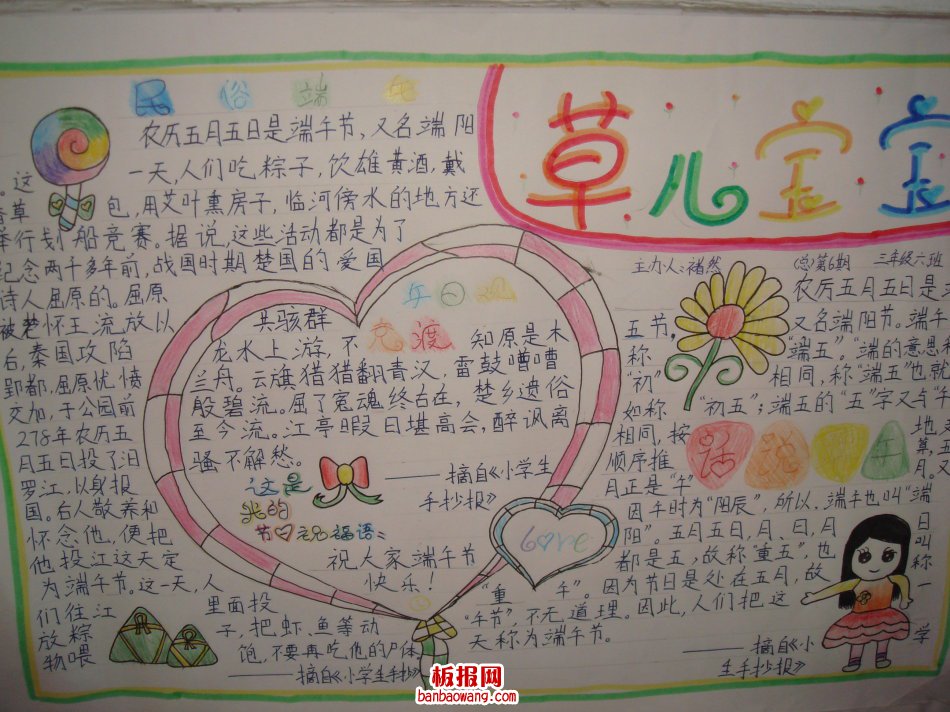 民俗端午
农历五月五日是端午节，又名端阳
一天，人们吃粽子，饮雄黄酒，戴
。这
香草
包，用艾叶熏房子，临河傍水的地方还
举行划船竞赛。据说，这些活动都是为了
纪念两千多年前，战国时期楚国的爱国
诗人屈原的。屈原
被楚怀王流放以
后，秦国攻陷
郢都，屈原忧愤
交加，于公园前
278年农历五
月五日投了汨
罗江，以身报
国。后人敬养和
怀念他，便把
他投江这天定
为端午节。这一天，人
们往江
里面投
放粽
子，把虾、鱼等动
物喂
饱，不要再吃他的尸体
——摘自《小学生手抄》
草儿宝宝
主办人：褚然
(总)第6期
三年级六班
午日观
竞渡
共骇群
龙水上游，不
知原是木
兰舟。云旗猎猎翻青汉，雷鼓嘈嘈
殷碧流。屈了冤魂终古在，楚乡遗俗
至今流。江亭暇日堪高会，醉讽离
骚不解愁。
——摘自《小学生
手抄报》
这是
我的
节 祝福语：
祝大家端午节
快乐！
Love
农历五月五日是
五节，
又名端阳节。端午
称
“端五”。“端的意思和
“初”
相同，称“端五”也就
如称
“初五”；端五的“五”字又与“午
话说端午
相同，按
地支
顺序推
算，五
月正是“午”
月。又
因午时为“阳辰”，所以，端午也叫“端
阳”。五月五日，月、日，月
日叫
都是五，故称“重五”，也
称
“重
午”。因为节日是处在五月，故
一
“午节”，不无道理。因此，人们把这
天称为端午节。
学
——摘自《小
生手抄报》
板报网
banbaowang.com